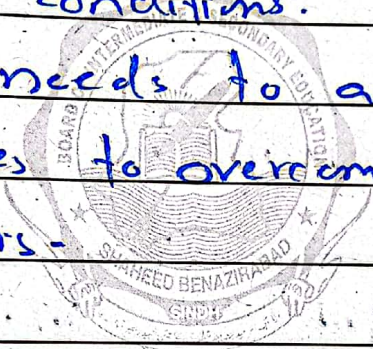 conditions.
needs to a
es to overcom
rs-
BOARD OF INTERMEDIATE & SECONDARY EDUCATION
SHAHEED BENAZIRABAD
SINDH